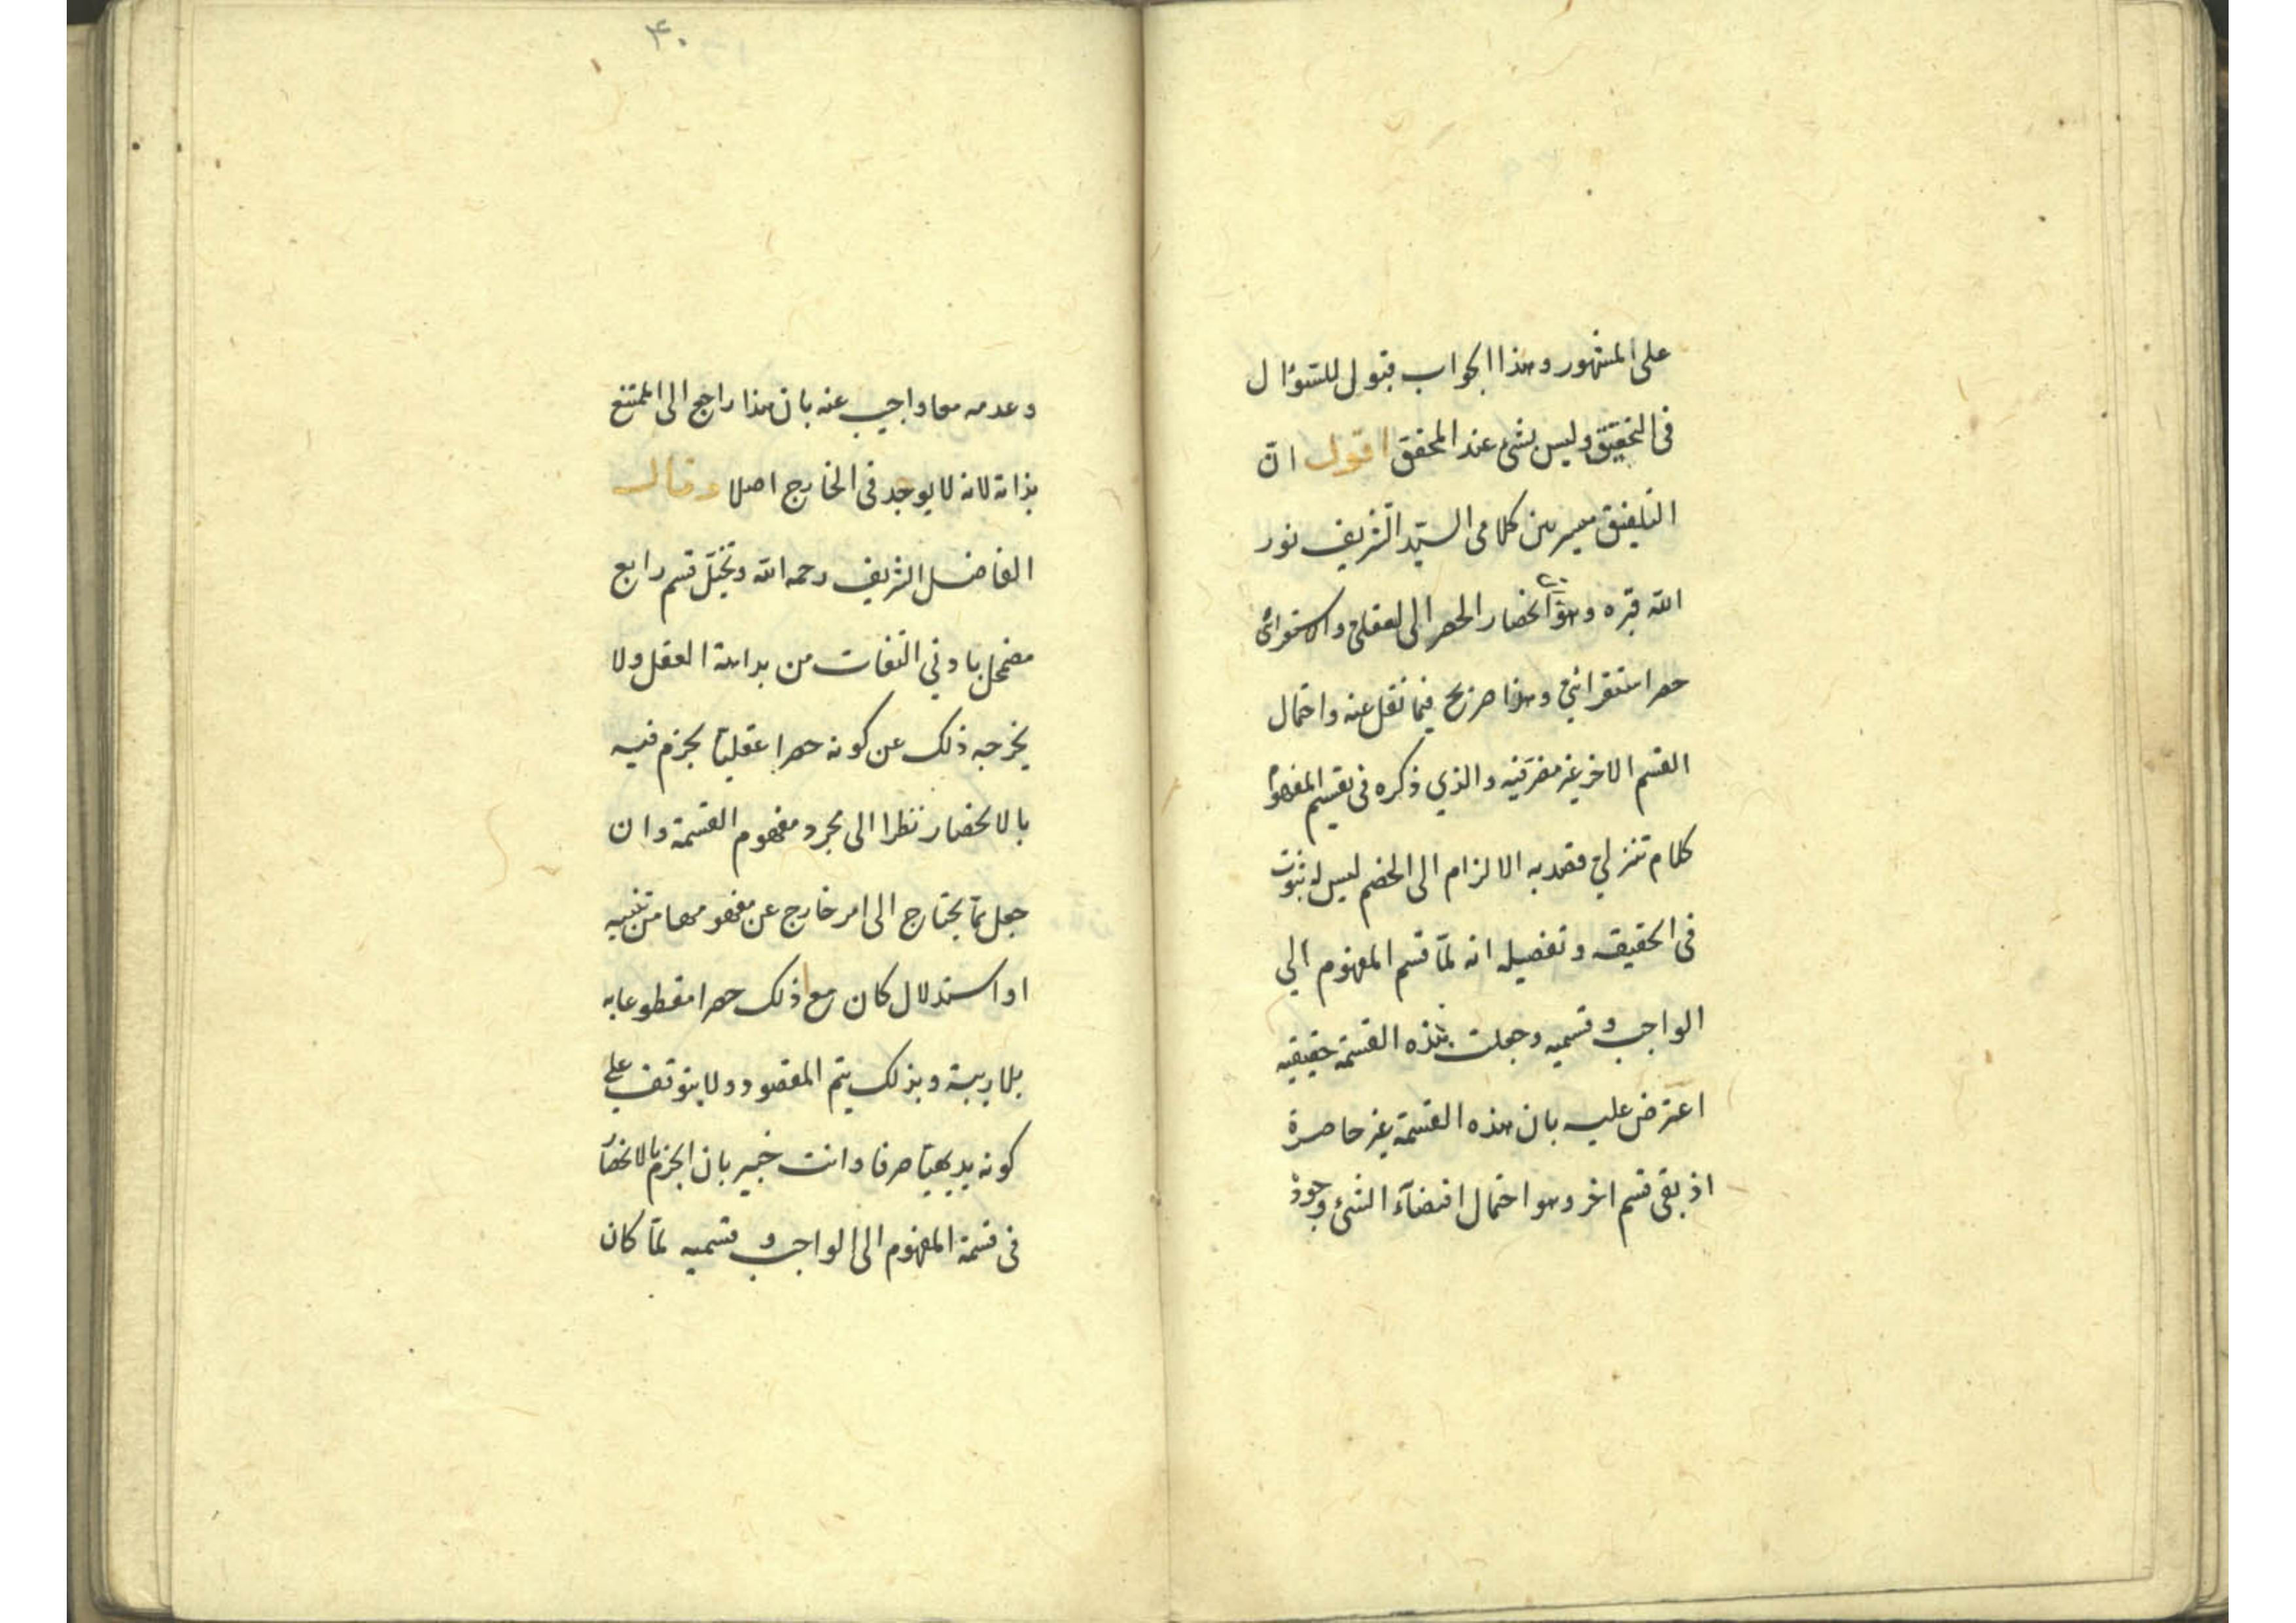 على المشهور وهذا الجواب قبول للسؤال
فى التحقيق وليس بشئ عند المحقق اقول ان
التلفيق ميسر بين كلامى السيّد الشريف نور
الله قبره وهو ان انحصار الحصر الى العقلىّ والاستقرائى
حصر استقرائىّ وهذا صريح فيما نقل عنه واحتمال
القسم الاخر غير مضر فيه والذي ذكره فى تقسيم المفهوم
كلام تنزلىّ قصد به الالزام الى الخصم ليس له ثبوت
فى الحقيقه وتفصيله انه لمّا قسم المفهوم الى
الواجب وقسميه وجعلت هذه القسمة حقيقيه
اعترض عليه بان هذه القسمة غير حاصرة
اذ بقى قسم اخر وهو احتمال اقتضآء الشئ وجوده
۴۰
وعدمه معا واجيب عنه بان هذا راجع الى الممتنع
بذاته لانه لا يوجد فى الخارج اصلا وقال
الفاضل الشريف رحمه الله وتخيّل قسم رابع
مضمحل بادنى التفات من بداهة العقل ولا
يخرجه ذلك عن كونه حصرا عقليّا يجزم فيه
بالانحصار نظرا الى مجرد مفهوم القسمة وان
جعل ممّا يحتاج الى امر خارج عن مفهومها من تنبيه
او استدلال كان مع ذلك حصرا مقطوعا به
بلا ريبة وبذلك يتم المقصود ولا يتوقف على
كونه بديهيّا صرفا وانت خبير بان الجزم بالانحصار
فى قسمة المفهوم الى الواجب وقسميه لمّا كان